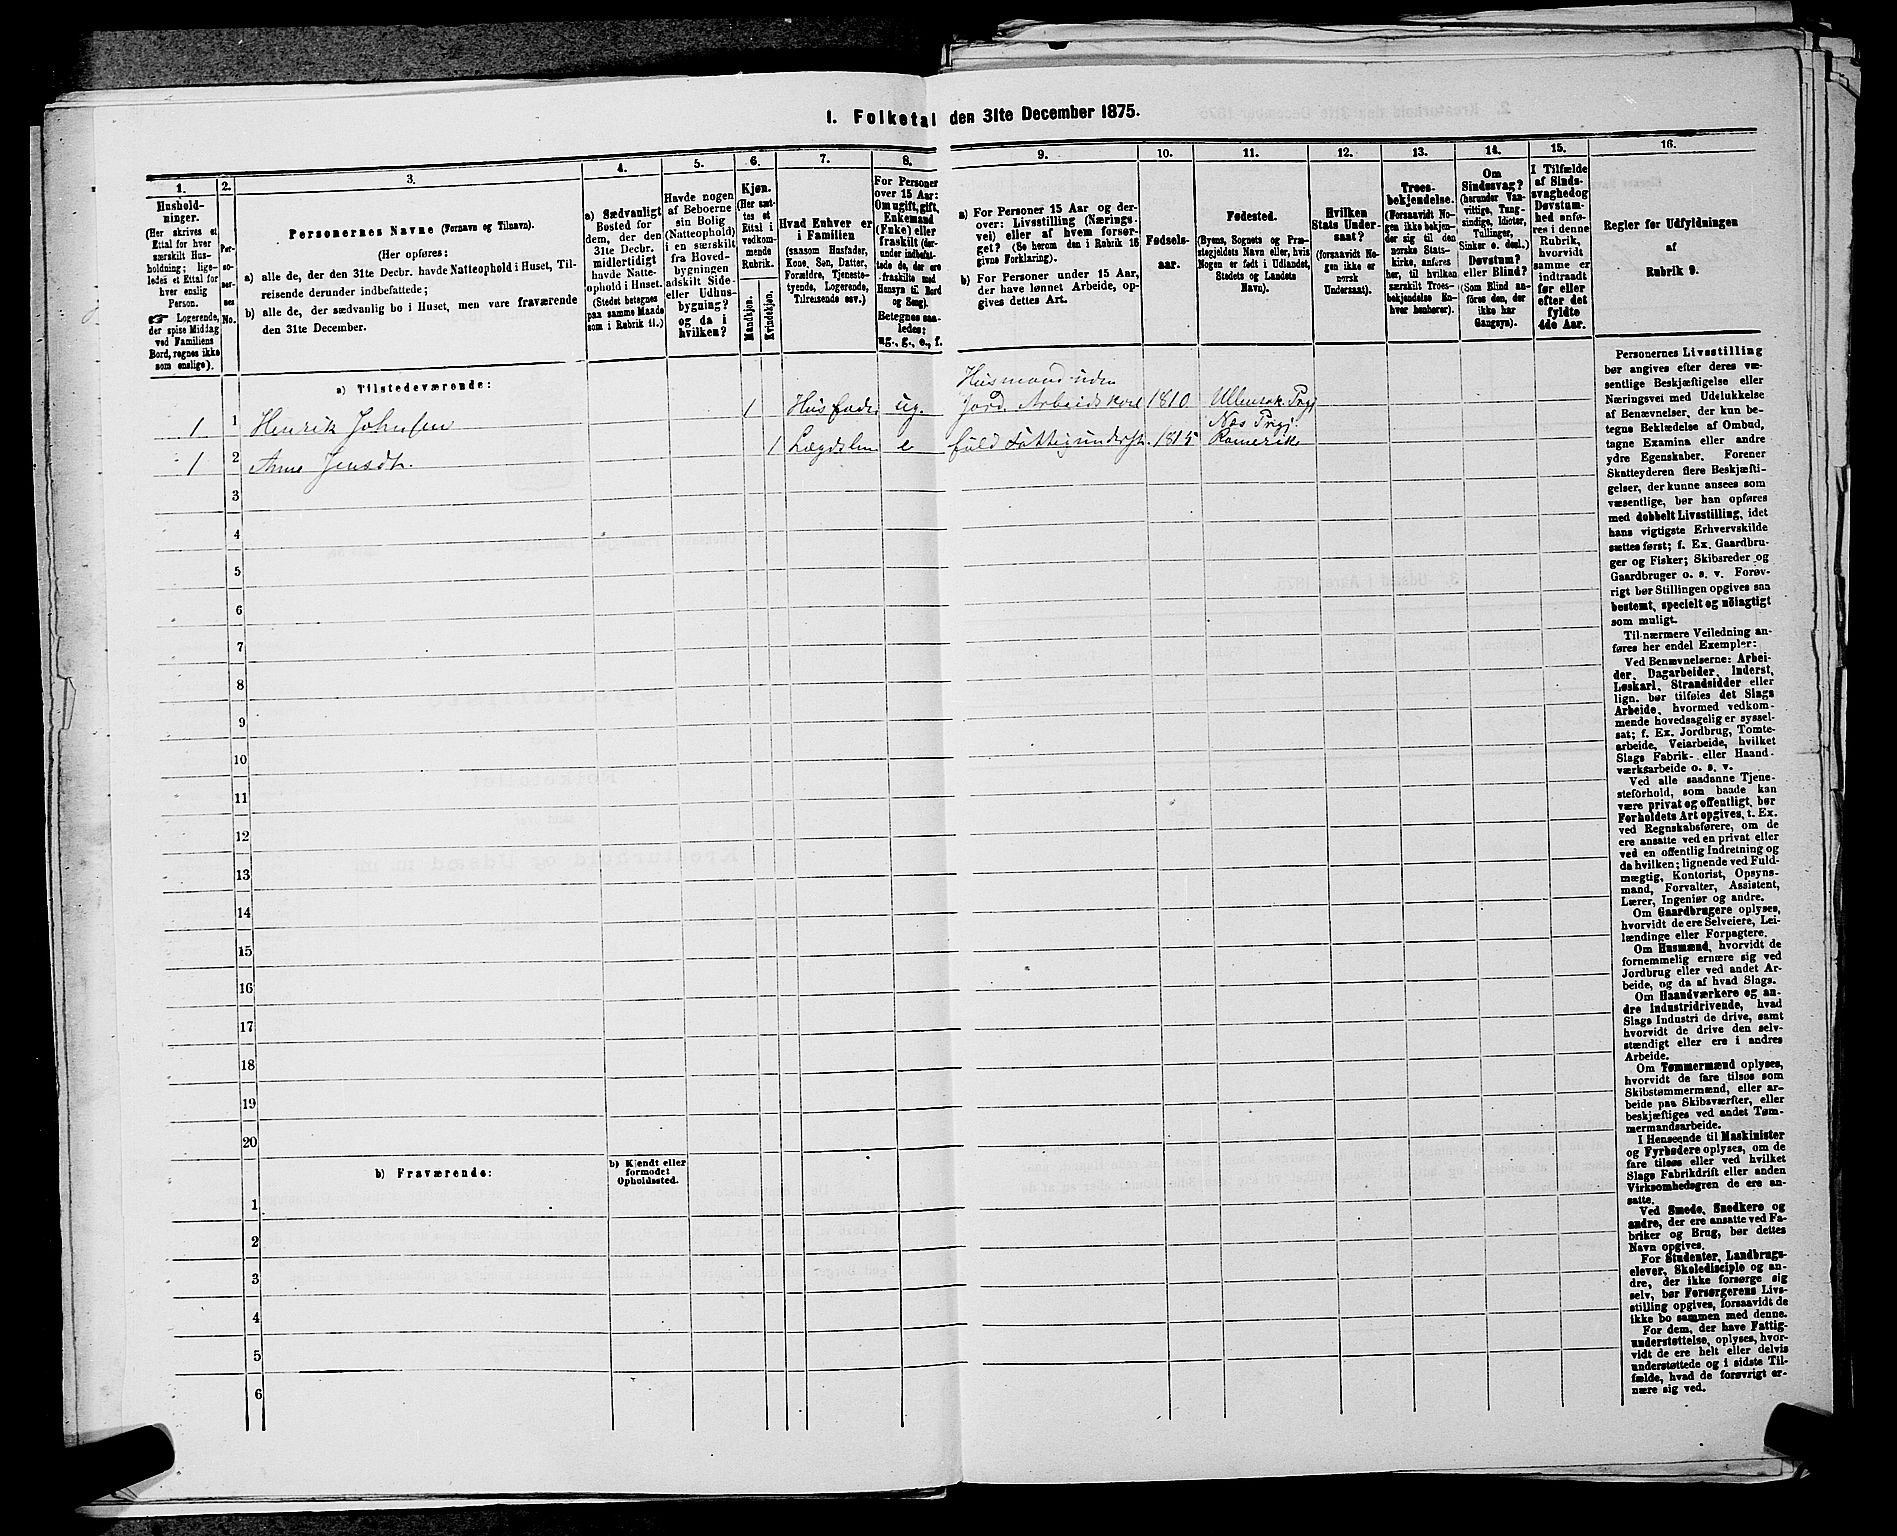 1. Folketal den 31te December 1875.
1.
Hushold-
ninger.
(Her skrives et
Ettal for hver
særskilt Hus-
holdning; lige-
ledes et Ettal for
hver enslig
Person.
☞ Logerende,
der spise Middag
ved Familiens
Bord, regnes ikke
som enslige).
2.
Per-
so-
ner-
nes
No.
3.
Personernes Navne (Fornavn og Tilnavn).
(Her opføres:
a) alle de, der den 31te Decbr. havde Natteophold i Huset, Til-
reisende derunder indbefattede;
b) alle de, der sædvanlig bo i Huset, men vare fraværende
den 31te December.
4.
a) Sædvanligt
Bosted for
dem, der den
31te Decbr.
midlertidigt
havde Natte-
ophold i Huset.
(Stedet betegnes
paa samme Maade
som i Rubrik 11.)
5.
Havde nogen
af Beboerne
sin Bolig
(Natteophold)
i en særskilt
fra Hoved-
bygningen
adskilt Side-
eller Udhus-
bygning?
og da i
hvilken?
6.
Kjøn.
(Her sæt-
tes et
Ettal i
vedkom-
mende
Rubrik.
Mandkjøn.
Kvindekjøn.
7.
Hvad Enhver er
i Familien
(saasom Husfader,
Kone, Søn, Datter,
Forældre, Tjeneste-
tyende, Logerende,
Tilreisende osv.)
8.
For Personer
over 15 Aar:
Om ugift, gift,
Enkemand
(Enke) eller
fraskilt (der-
under indbefat-
tede de, der ere
fraskilte med
Hensyn til Bord
og Seng).
Betegnes saa-
ledes:
ug., g., e., f.
9.
a) For Personer 15 Aar og der-
over: Livsstilling (Nærings-
vei) eller af hvem forsør-
get? (Se herom den i Rubrik 16
givne Forklaring).
b) For Personer under 15 Aar,
der have lønnet Arbeide, op-
gives dettes Art.
10.
Fødsels-
aar.
11.
Fødested.
(Byens, Sognets og Præ-
stegjeldets Navn eller, hvis
Nogen er født i Udlandet,
Stedets og Landets
Navn).
12.
Hvilken
Stats Under-
saat?
(forsaavidt No-
gen ikke er
norsk
Undersaat).
13.
Troes-
bekjendelse.
(Forsaavidt No-
gen ikke bekjen-
der sig til den
norske Stats-
kirke, anføres
her, til hvilken
særskilt Troes-
bekjendelse En-
hver henhører).
14.
Om
Sindssvag?
(herunder Van-
vittige, Tung-
sindige, Idioter,
Tullinger,
Sinker o. desl.)
Døvstum?
eller Blind?
(Som Blind an-
føres den, der
ikke har
Gangsyn).
15.
I Tilfælde
af Sinds-
svaghed og
Døvstum-
hed anfø-
res i denne
Rubrik,
hvorvidt
samme er
indtraadt
før eller
efter det
fyldte
4de Aar.
16.
Regler for Udfyldningen
af
Rubrik 9.
a) Tilstedeværende:
1 1 Henrik Johnsen 1 Husfader ug. Husmand uden Jord. Arbeidskarl 1810 Ullensak. Prgj
1 2 Anne Jensdt. 1 Lægdslem e fuld Fattigunderst. 1815 Næs Prgj. Romerike
3
4
5
6
7
8
9
10
11
12
13
14
15
16
17
18
19
20
b) Fraværende:
b) Kjendt eller
formodet
Opholdssted.
1
2
3
4
5
6
Personernes Livsstilling
bør angives efter deres væ-
sentlige Beskjæftigelse eller
Næringsvei med Udelukkelse
af Benævnelser, der kun be-
tegne Beklædelse af Ombud,
tagne Examina eller andre
ydre Egenskaber. Forener
Skatteyderen flere Beskjæfti-
gelser, der kunne ansees som
væsentlige, bør han opføres
med dobbelt Livsstilling, idet
hans vigtigste Erhvervskilde
sættes først; f. Ex. Gaardbru-
ger og Fisker; Skibsreder og
Gaardbruger o. s. v. Forøv-
rigt bør Stillingen opgives saa
bestemt, specielt og nöiagtigt
som muligt.
Til nærmere Veiledning an-
føres her endel Exempler:
Ved Benævnelserne: Arbei-
der, Dagarbeider, Inderst,
Løskarl, Strandsidder eller
lign. bør tilføies det Slags
Arbeide, hvormed vedkom-
mende hovedsagelig er syssel-
sat; f. Ex. Jordbrug, Tomte-
arbeide, Veiarbeide, hvilket
Slags Fabrik- eller Haand-
værksarbeide o. s. v.
Ved alle saadanne Tjene-
steforhold, som baade kan
være privat og offentligt, bør
Forholdets Art opgives, t. Ex.
ved Regnskabsførere, om de
ere ansatte ved en privat eller
ved en offentlig Indretning og
da hvilken; lignende ved Fuld-
mægtig, Kontorist, Opsyns-
mand, Forvalter, Assistent,
Lærer, Ingeniør og andre.
Om Gaardbrugere oplyses,
hvorvidt de ere Selveiere, Lei-
lændinge eller Forpagtere.
Om Husmænd, hvorvidt de
fornemmelig ernære sig ved
Jordbrug eller ved andet Ar-
beide, og da af hvad Slags.
Om Haandværkere og an-
dre Industridrivende, hvad
Slags Industri de drive, samt
hvorvidt de drive den selv-
stændigt eller ere i andres
Arbeide.
Om Tømmermænd oplyses,
hvorvidt de fare tilsøs som
Skibstømmermænd, eller ar-
beide paa Skibsværfter, eller
beskjæftiges ved andet Tøm-
mermandsarbeide.
I Henseende til Maskinister
og Fyrbødere oplyses, om de
fare tilsøs eller ved hvilket
Slags Fabrikdrift eller anden
Virksomhedsgren de ere an-
satte.
Ved Smede, Snedkere og
andre, der ere ansatte ved Fa-
briker og Brug, bør dettes
Navn opgives.
For Studenter, Landbrugs-
elever, Skoledisciple og an-
dre, der ikke forsørge sig
selv, bør Forsørgerens Livs-
stilling opgives, forsaavidt de
ikke bo sammen med denne.
For dem, der have Fattig-
understøttelse, oplyses, hvor-
vidt de ere helt eller delvis
understøttede og i sidste Til-
fælde, hvad de forøvrigt er-
nære sig ved.